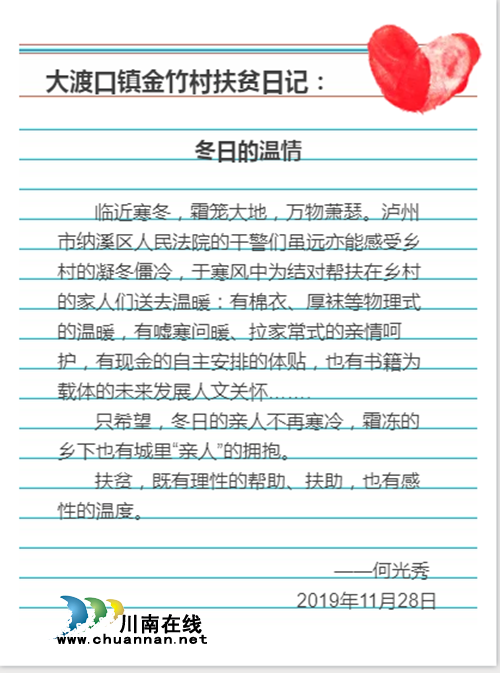 大渡口镇金竹村扶贫日记：
冬日的温情
临近寒冬，霜笼大地，万物萧瑟。泸州
市纳溪区人民法院的干警们虽远亦能感受乡
村的凝冬僵冷，于寒风中为结对帮扶在乡村
的家人们送去温暖：有棉衣、厚袜等物理式
的温暖，有嘘寒问暖、拉家常式的亲情呵
护，有现金的自主安排的体贴，也有书籍为
载体的未来发展人文关怀.......
只希望，冬日的亲人不再寒冷，霜冻的
乡下也有城里“亲人”的拥抱。
扶贫，既有理性的帮助、扶助，也有感
性的温度。
——何光秀
2019年11月28日
川南在线
www.chuannan.net